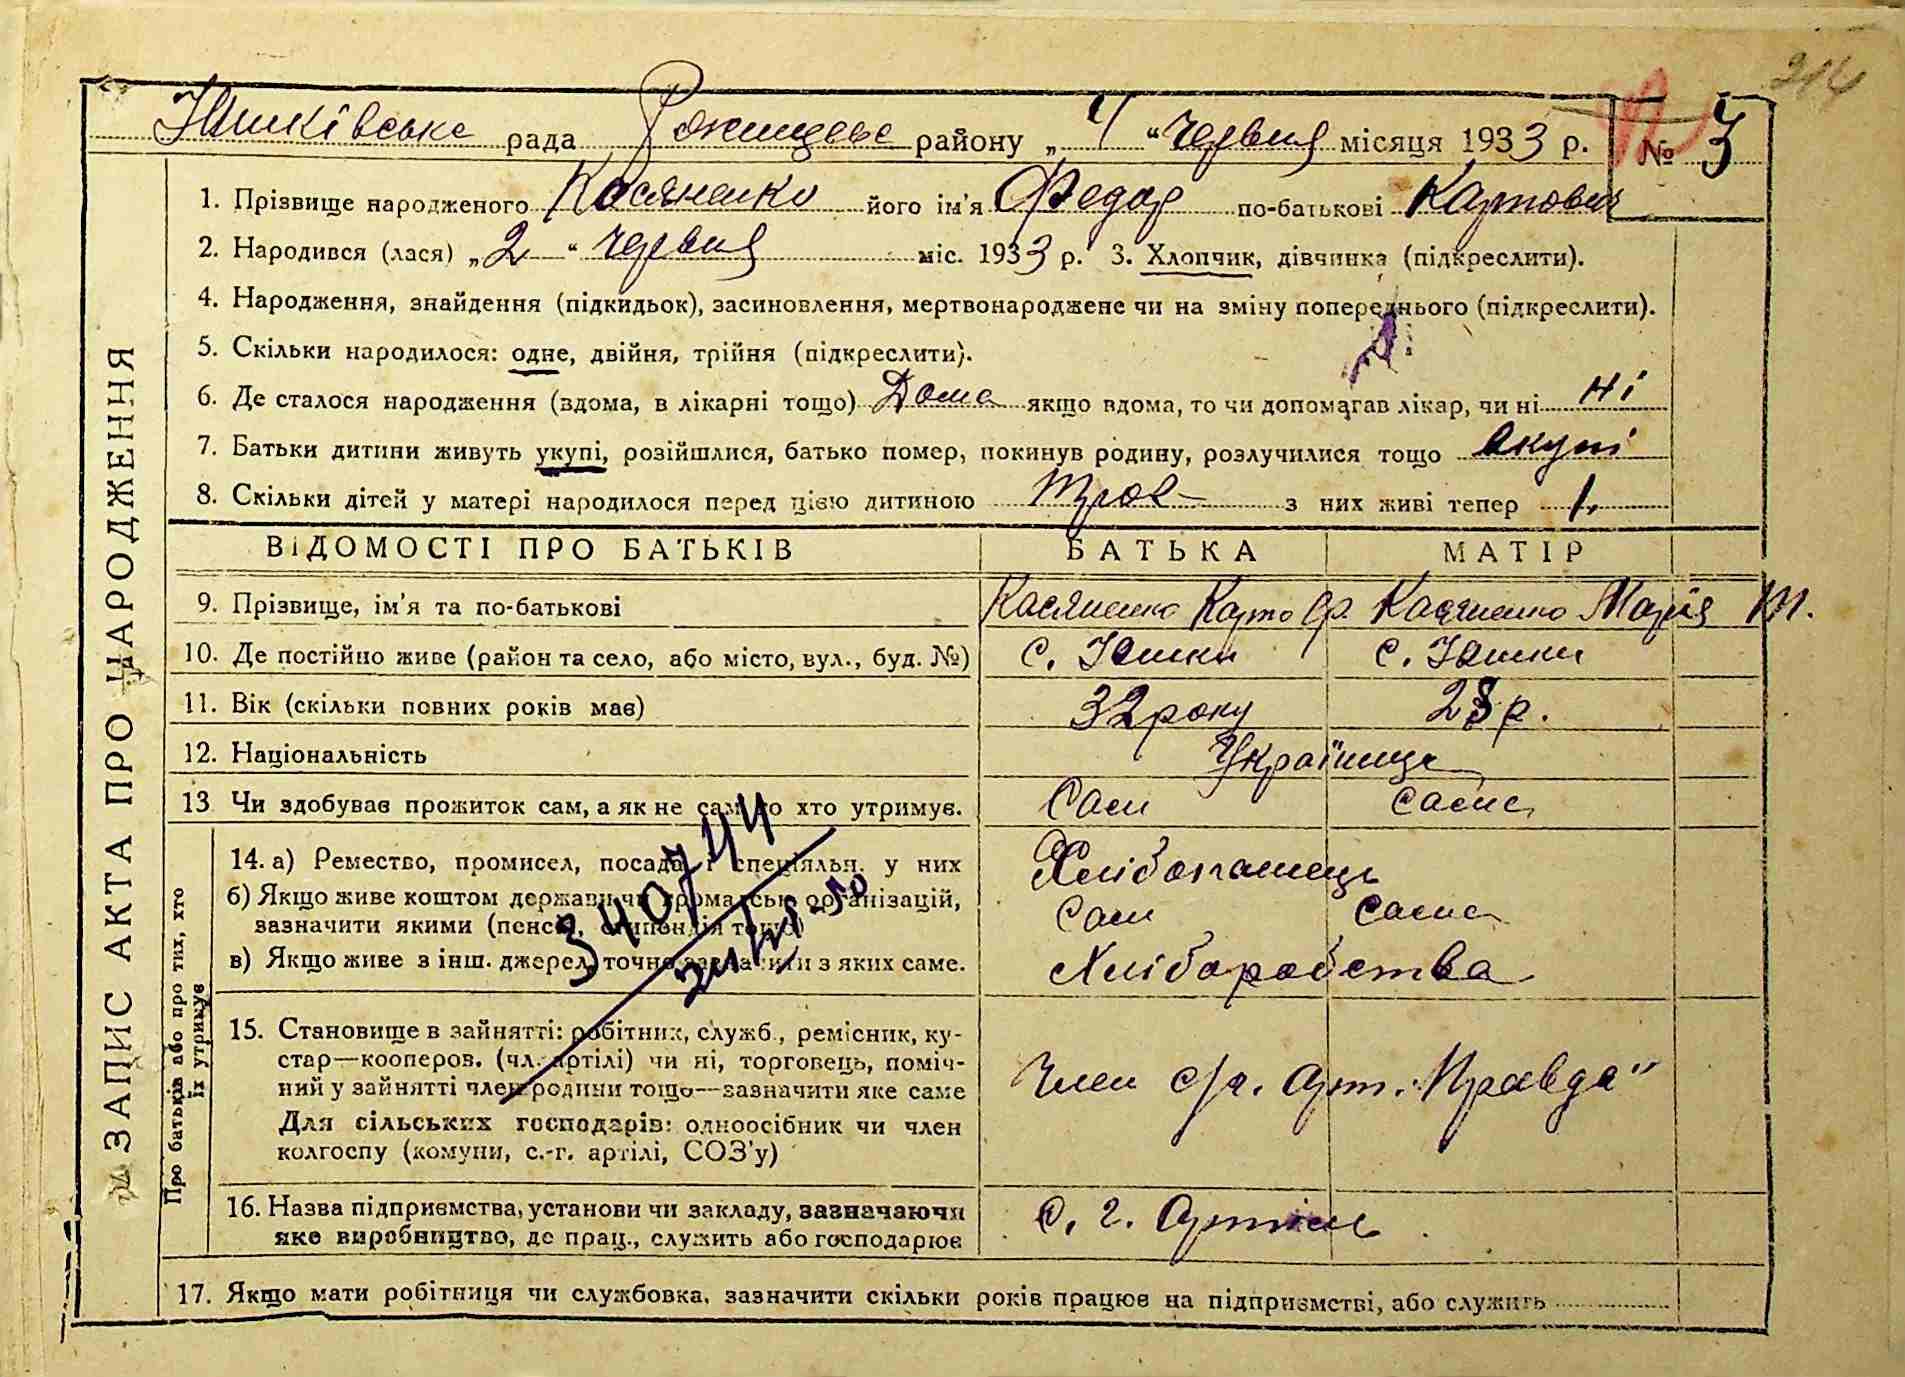 214
Юшківське рада району „4“ Червня місяця 1933 р. № 3
1. Прізвище народженого Касяненко його ім'я Федор по-батькові Картович
2. Народився (лася) „2“ Червня міс. 1933 р. 3. Хлопчик, дівчинка (підкреслити).
4. Народження, знайдення (підкидьок), засиновлення, мертвонароджене чи на зміну попереднього (підкреслити).
5. Скільки народилося: одне, двійня, трійня (підкреслити).
6. Де сталося народження (вдома, в лікарні тощо) Дома якщо вдома, то чи допомагав лікар, чи ні ні
7. Батьки дитини живуть укупі, розійшлися, батько помер, покинув родину, розлучилися тощо вкупі
8. Скільки дітей у матері народилося перед цією дитиною троє з них живі тепер 1.
ВІДОМОСТІ ПРО БАТЬКІВ БАТЬКА МАТІР
9. Прізвище, ім'я та по-батькові Касяненко Карто Ф. Касяненко Марія М.
10. Де постійно живе (район та село, або місто, вул., буд. №) с. Юшки с. Юшки
11. Вік (скільки повних років має) 32 року 28 р.
12. Національність Українці
13 Чи здобуває прожиток сам, а як не сам, то хто утримує. Сам сама
14. а) Ремество, промисел, посада і спеціяльн. у них Хлібопашець
б) Якщо живе коштом держави чи громадськ. організацій,
зазначити якими (пенсія, стипендія тощо) Сам сама
в) Якщо живе з інш. джерел, точно зазначити з яких саме. Хліборобства
340744
15. Становище в зайнятті: робітник, служб., ремісник, ку-
стар—кооперов. (чл. артілі) чи ні, торговець, поміч-
ний у зайнятті член родини тощо—зазначити яке саме
Для сільських господарів: одноосібник чи член
колгоспу (комуни, с.-г. артілі, СОЗ'у)
Член с/г. арт. „Правда“
16. Назва підприємства, установи чи закладу, зазначаючи
яке виробництво, де прац., служить або господарює
с. г. Артіль
17. Якщо мати робітниця чи службовка, зазначити скільки років працює на підприємстві, або служить
ЗАПИС АКТА ПРО НАРОДЖЕННЯ
Про батьків або про тих, хто
їх утримує